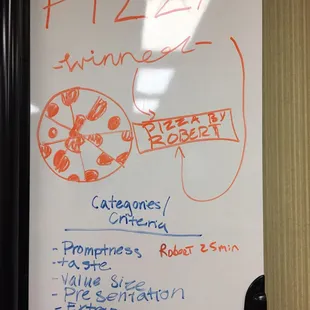 PIZZA
-winner-
PIZZA BY
ROBERT
Categories/
Criteria
- Promptness Robert 25min
- taste
- Value Size
- Presentation